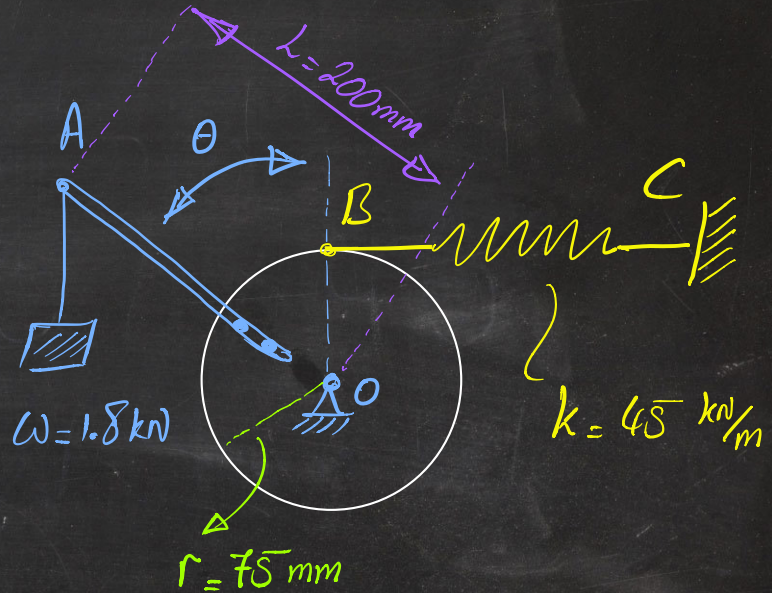 L=200mm
A
θ
B
C
O
ω=1.8kN
k=45 kN/m
r=75mm